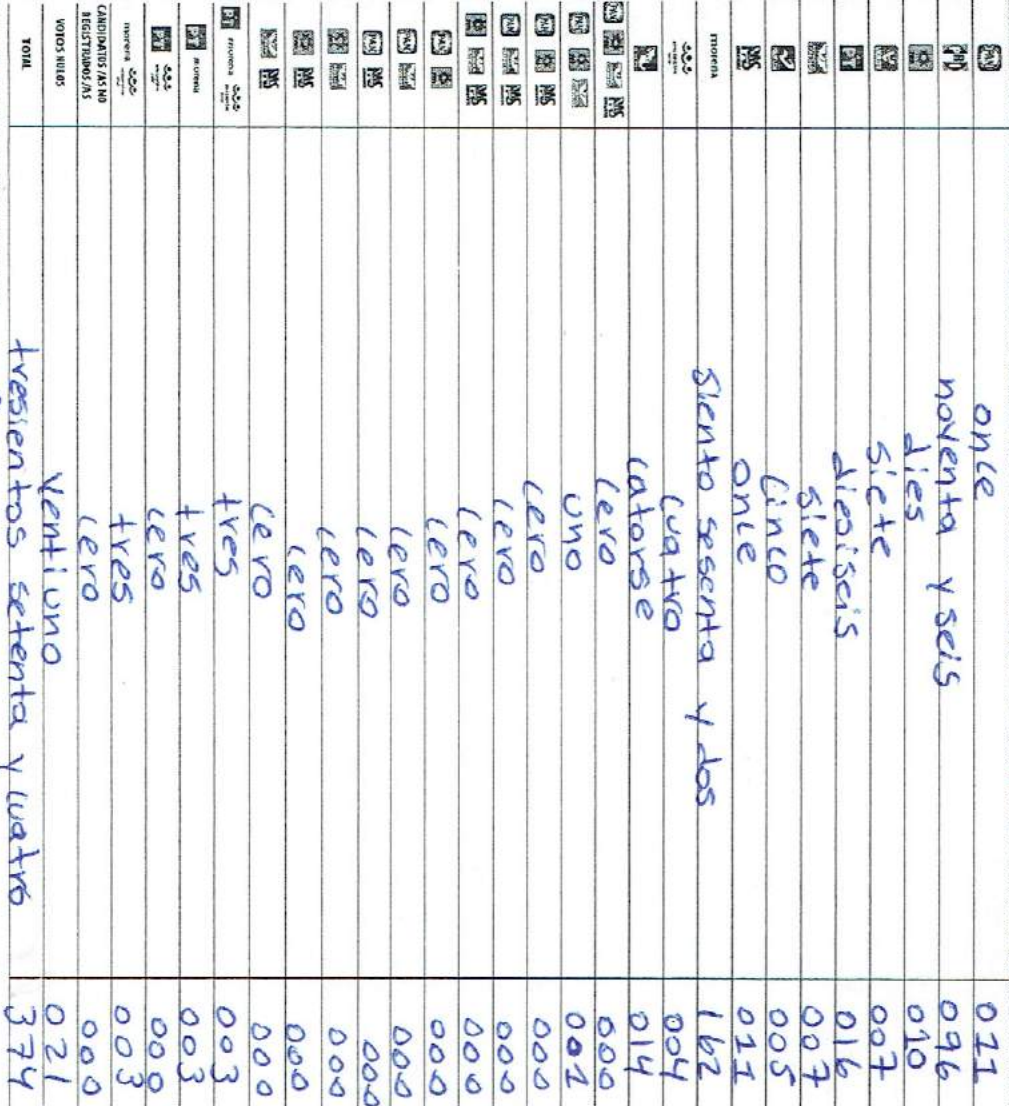 PAN once 011
PRI noventa y seis 096
dies 010
siete 007
PT diesiseis 016
siete 007
cinco 005
MS once 011
morena siento sesenta y dos 162
cuatro 004
catorse 014
PAN MS cero 000
PAN uno 001
PAN MS cero 000
PAN MS cero 000
MS cero 000
PAN cero 000
PAN cero 000
PAN MS cero 000
cero 000
MS cero 000
MS cero 000
PT morena tres 003
PT morena tres 003
PT cero 000
morena tres 003
CANDIDATOS/AS NO REGISTRADOS/AS cero 000
VOTOS NULOS ventiuno 021
TOTAL tresientos setenta y cuatro 374